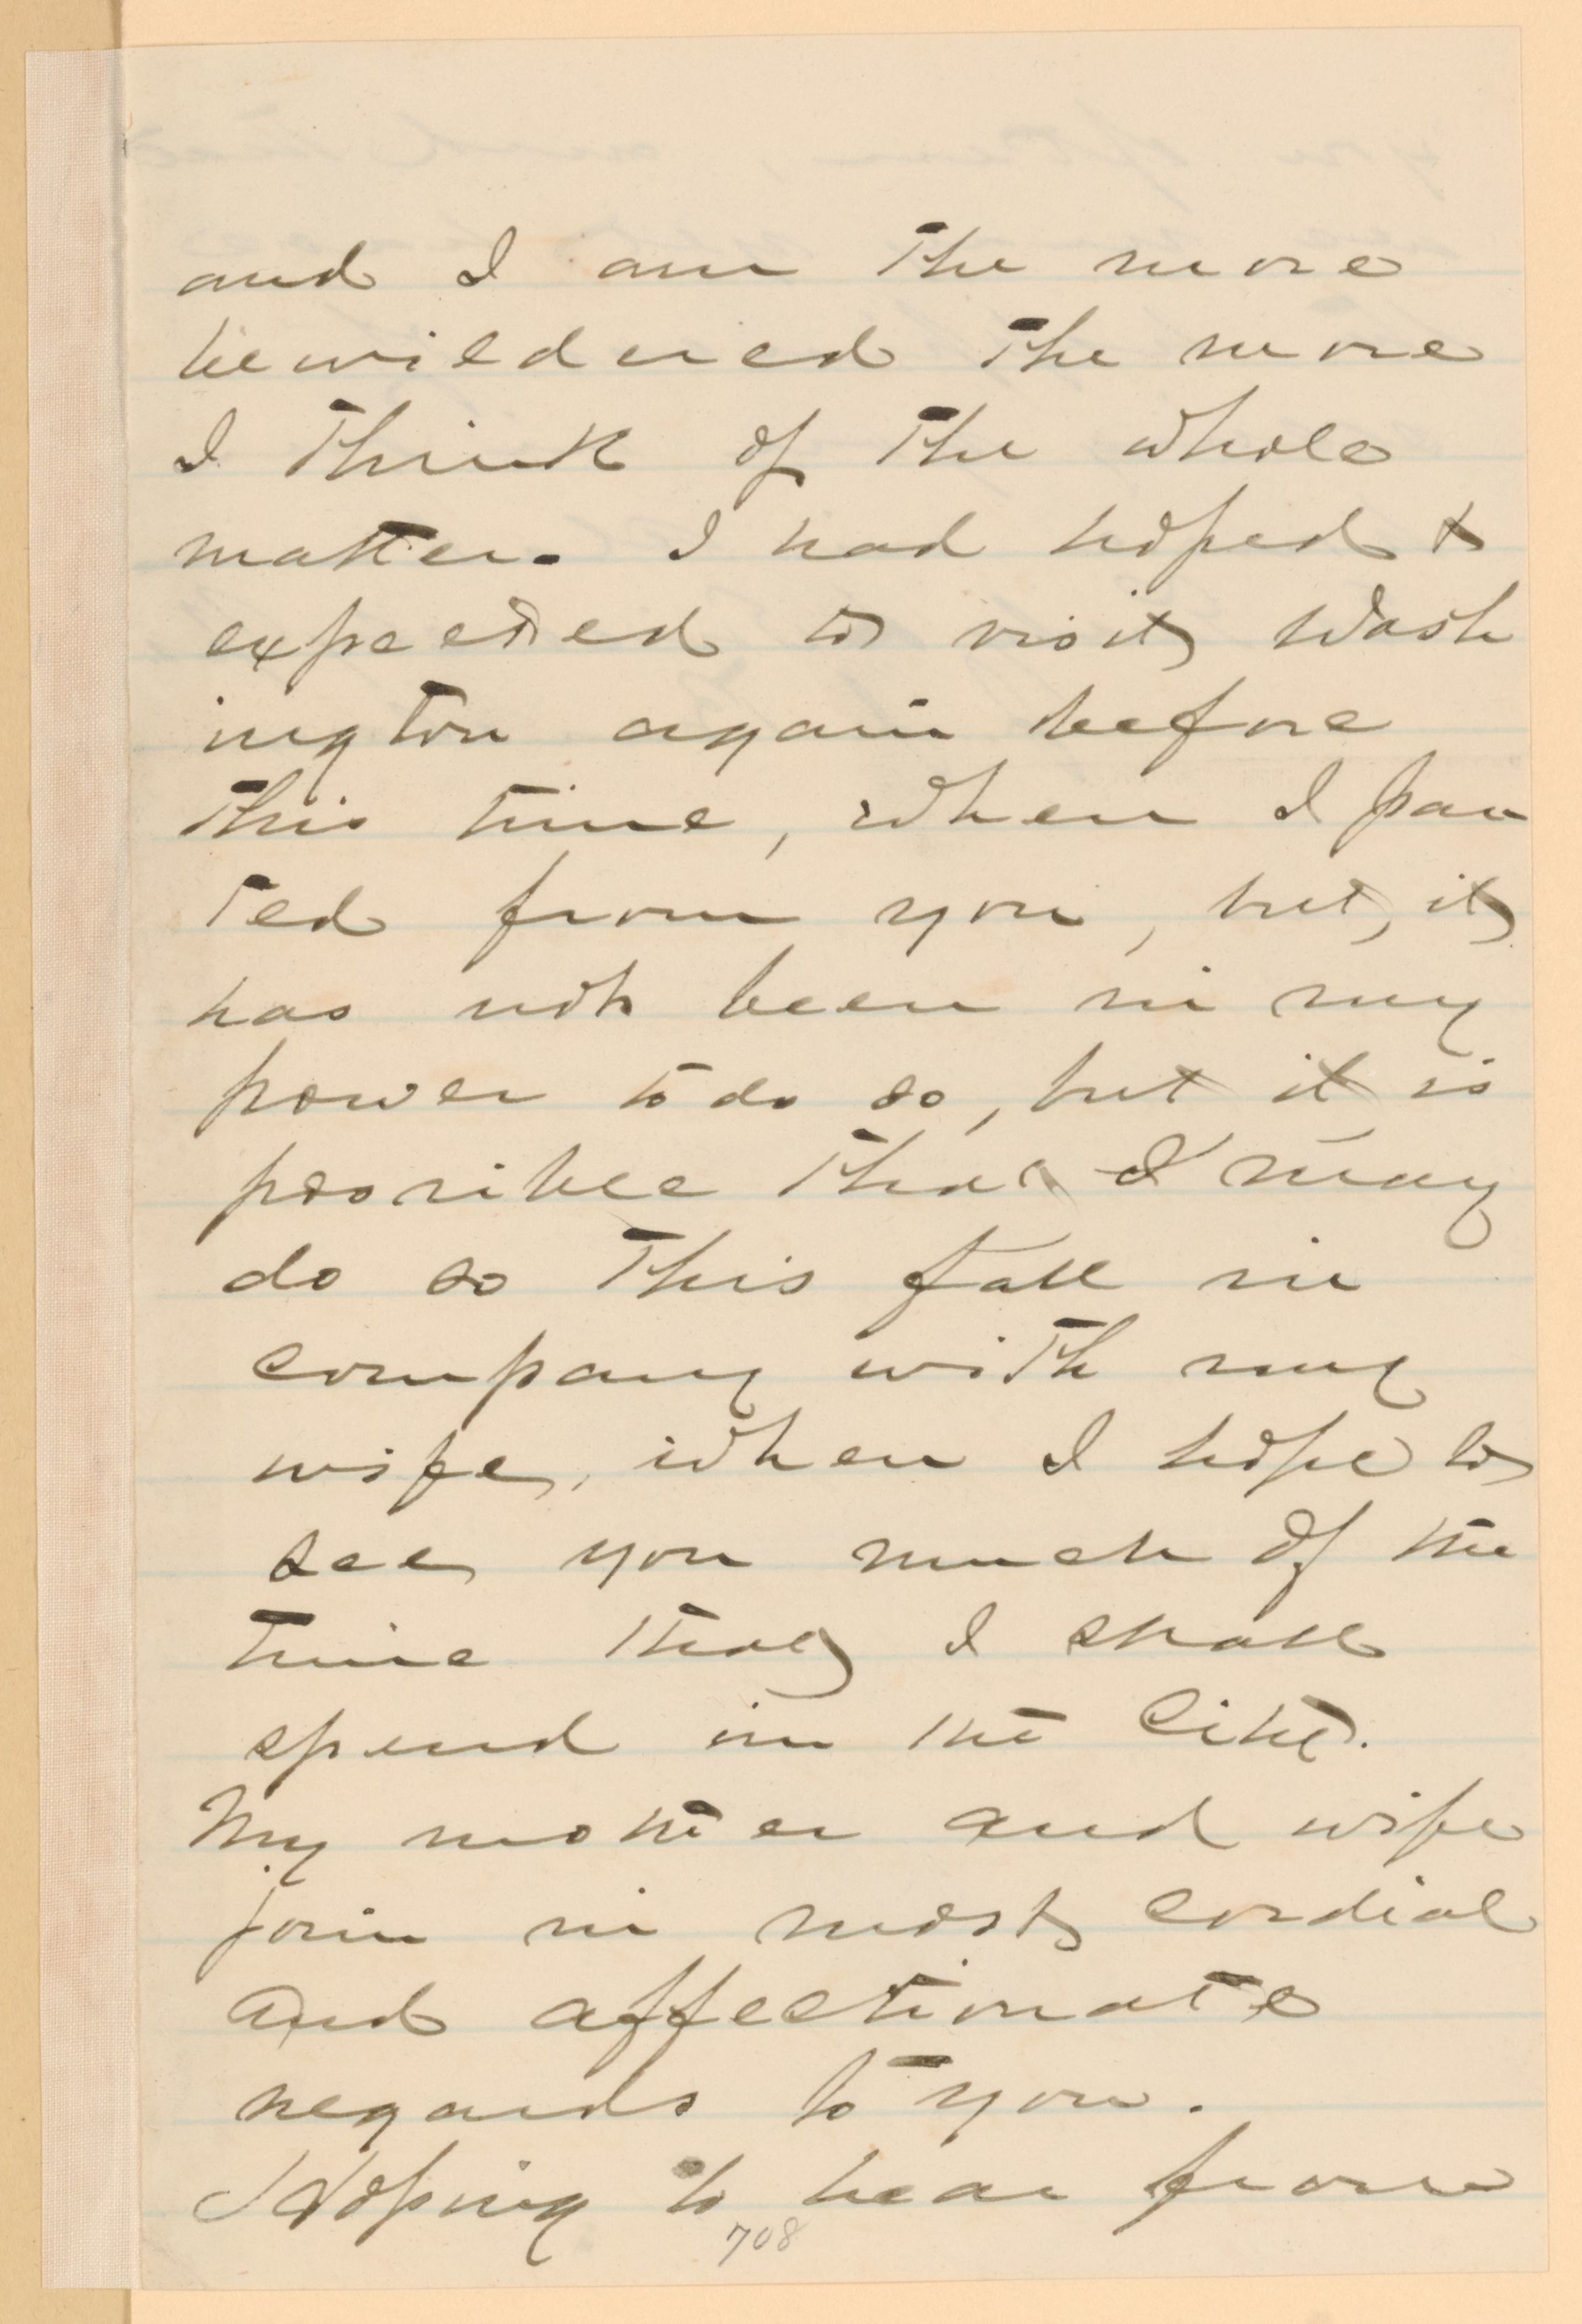 and I am the more
bewildered the more
I think of the whole
matter. I had hoped &
expected to visit Wash
ington again before
this time, when I par
ted from you, but, it
has not been in my
power to do so, but it is
possible that I may
do so this fall in
company with my
wife, when I hope to
see you much of the
time that I shall
spend in the City.
My mother and wife
join in most cordial
and affectionate
regards to you.
Hoping to hear from
708